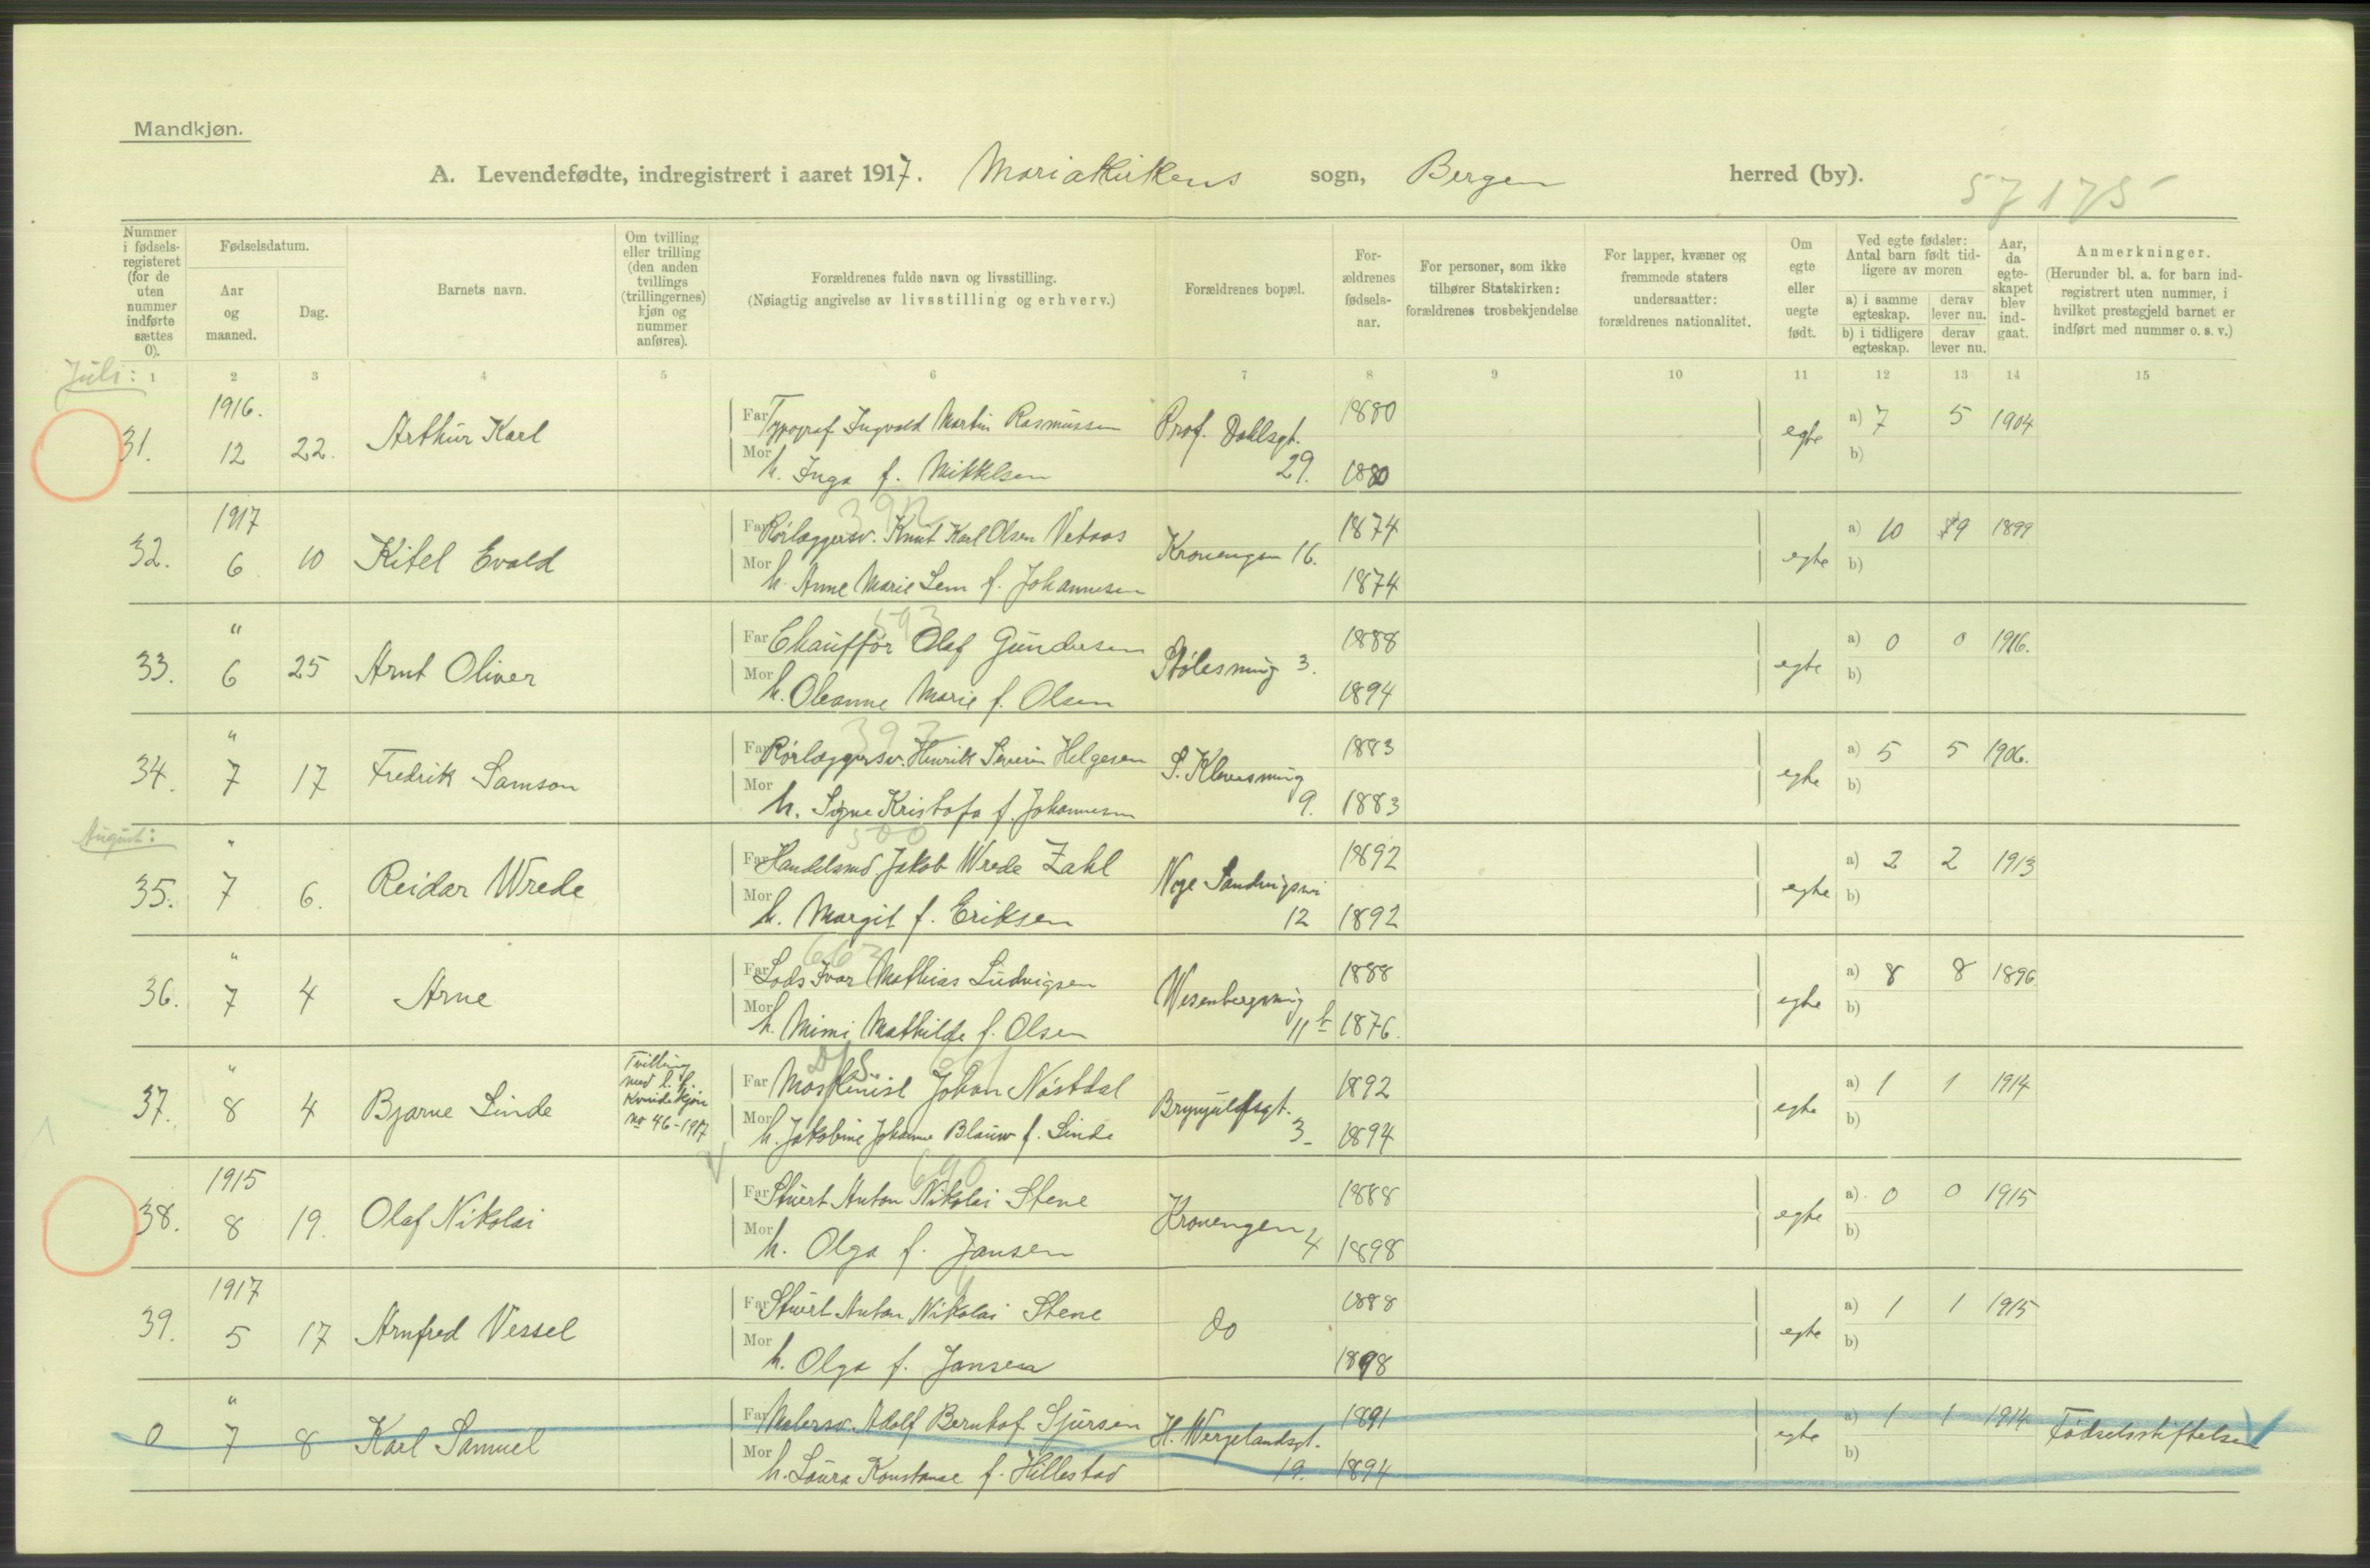 Mandkjøn.
A. Levendefødte, indregistrert i aaret 1917. Mariakirkens sogn, Bergen herred (by).
57175
Nummer i fødsels-registeret (for de uten nummer indførte sættes 0).
Fødselsdatum.
Aar og maaned.
Dag.
Barnets navn.
Om tvilling eller trilling (den anden tvillings (trillingernes) kjøn og nummer anføres).
Forældrenes fulde navn og livsstilling.
(Nøiagtig angivelse av livsstilling og erhverv.)
Forældrenes bopæl.
For-ældrenes fødsels-aar.
For personer, som ikke tilhører Statskirken: forældrenes trosbekjendelse
For lapper, kvæner og fremmede staters undersaatter: forældrenes nationalitet.
Om egte eller uegte født.
Ved egte fødsler: Antal barn født tid-ligere av moren
a) i samme egteskap.
derav lever nu.
b) i tidligere egteskap.
derav lever nu.
Aar, da egte-skapet blev ind-gaat.
Anmerkninger.
(Herunder bl. a. for barn ind-registrert uten nummer, i hvilket prestegjeld barnet er indført med nummer o. s. v.)
Juli:
1 2 3 4 5 6 7 8 9 10 11 12 13 14 15
1916.
31. 12 22. Arthur Karl
Far Typograf Ingvald Martin Rasmussen Prof. Dahlsgt. 1880 egte a) 7 5 1904
Mor h. Inga f. Mikkelsen 29. 1880 b)
392
1917
32. 6 10 Kitel Evald
Far Rørlæggersv. Knut Karl Olsen Vetaas Kronengen 16. 1874 egte a) 10 9 1899
Mor h. Anne Marie Lem f. Johannesen 1874 b)
593
"
33. 6 25 Arnt Oliver
Far Chauffør Olaf Gundersen Stølesmug 3. 1888 egte a) 0 0 1916.
Mor h. Oleanne Marie f. Olsen 1894 b)
392
"
34. 7 17 Fredrik Samson
Far Rørlæggersv. Henrik Severin Helgesen S. Kleversmug 1883 egte a) 5 5 1906.
Mor h. Signe Kristofa f. Johannesen 9. 1883 b)
August:
500
"
35. 7 6. Reidar Wrede
Far Handelsmd Jakob Wrede Zahl Nye Sandvigsvei 1892 egte a) 2 2 1913
Mor h. Margit f. Eriksen 12 1892 b)
"
36. 7 4 Arne
Far Lods Ivar Mathias Ludvigsen Wesenbergsmug 1888 egte a) 8 8 1896
Mor h. Mimi Mathilde f. Olsen 11 b 1876. b)
"
37. 8 4 Bjarne Linde
Tvilling med
Kvindekjøn
No 46-1917
Far Maskinist Johan Nastdal Brynjulfsgt. 1892 egte a) 1 1 1914
Mor h. Jakobine Johanne Blauw f. Linde 3 1894 b)
690
1915
38. 8 19. Olaf Nikolai
Far Stuert Anton Nikolai Stene Kronengen 1888 egte a) 0 0 1915
Mor h. Olga f. Jansen 4 1898 b)
1917
39. 5 17 Arnfred Vessel
Far Stuert Anton Nikolai Stene do 1888 egte a) 1 1 1915
Mor h. Olga f. Jansen 1898 b)
"
0 7 8 Karl Samuel
Far Malersv. Adolf Bernhof Sjursen H. Wergelandsgt. 1891 egte a) 1 1 1914 Fødselsstiftelsen
Mor h. Laura Konstanse f. Hillestad 19. 1894 b)